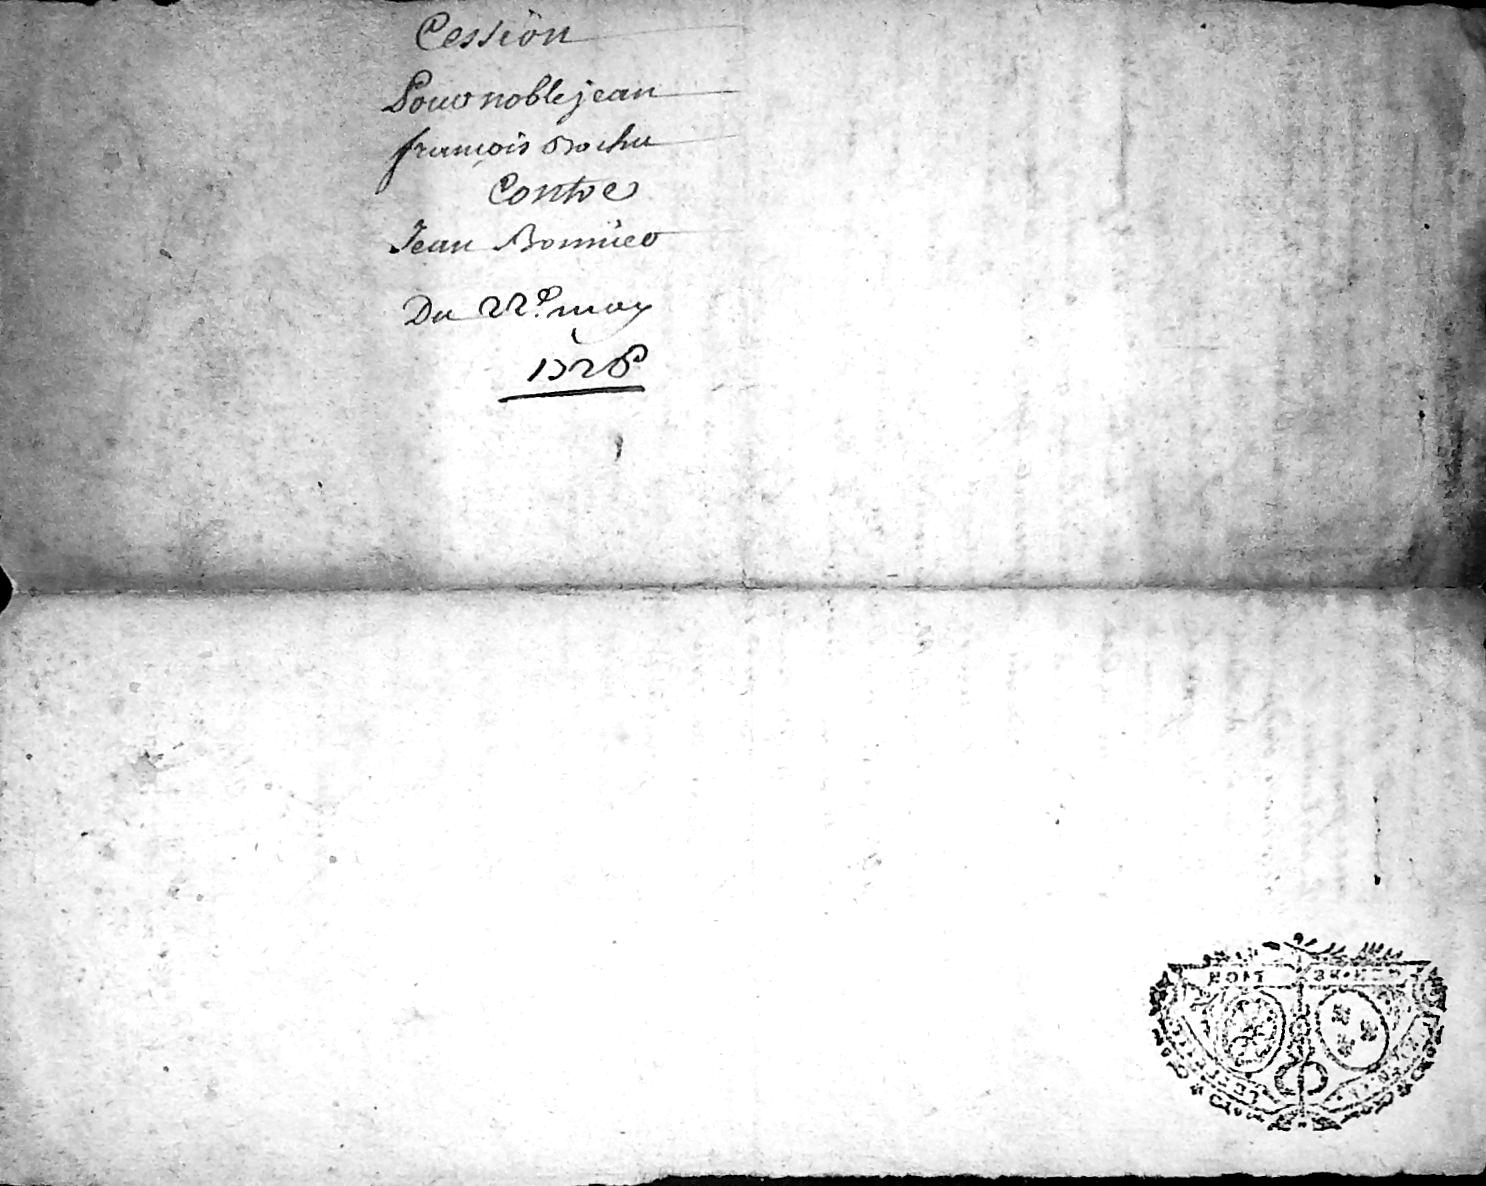 Cession
Pour noble jean
françois Rochu
Contre
Jean Bonnier
Du 22e. may
1728